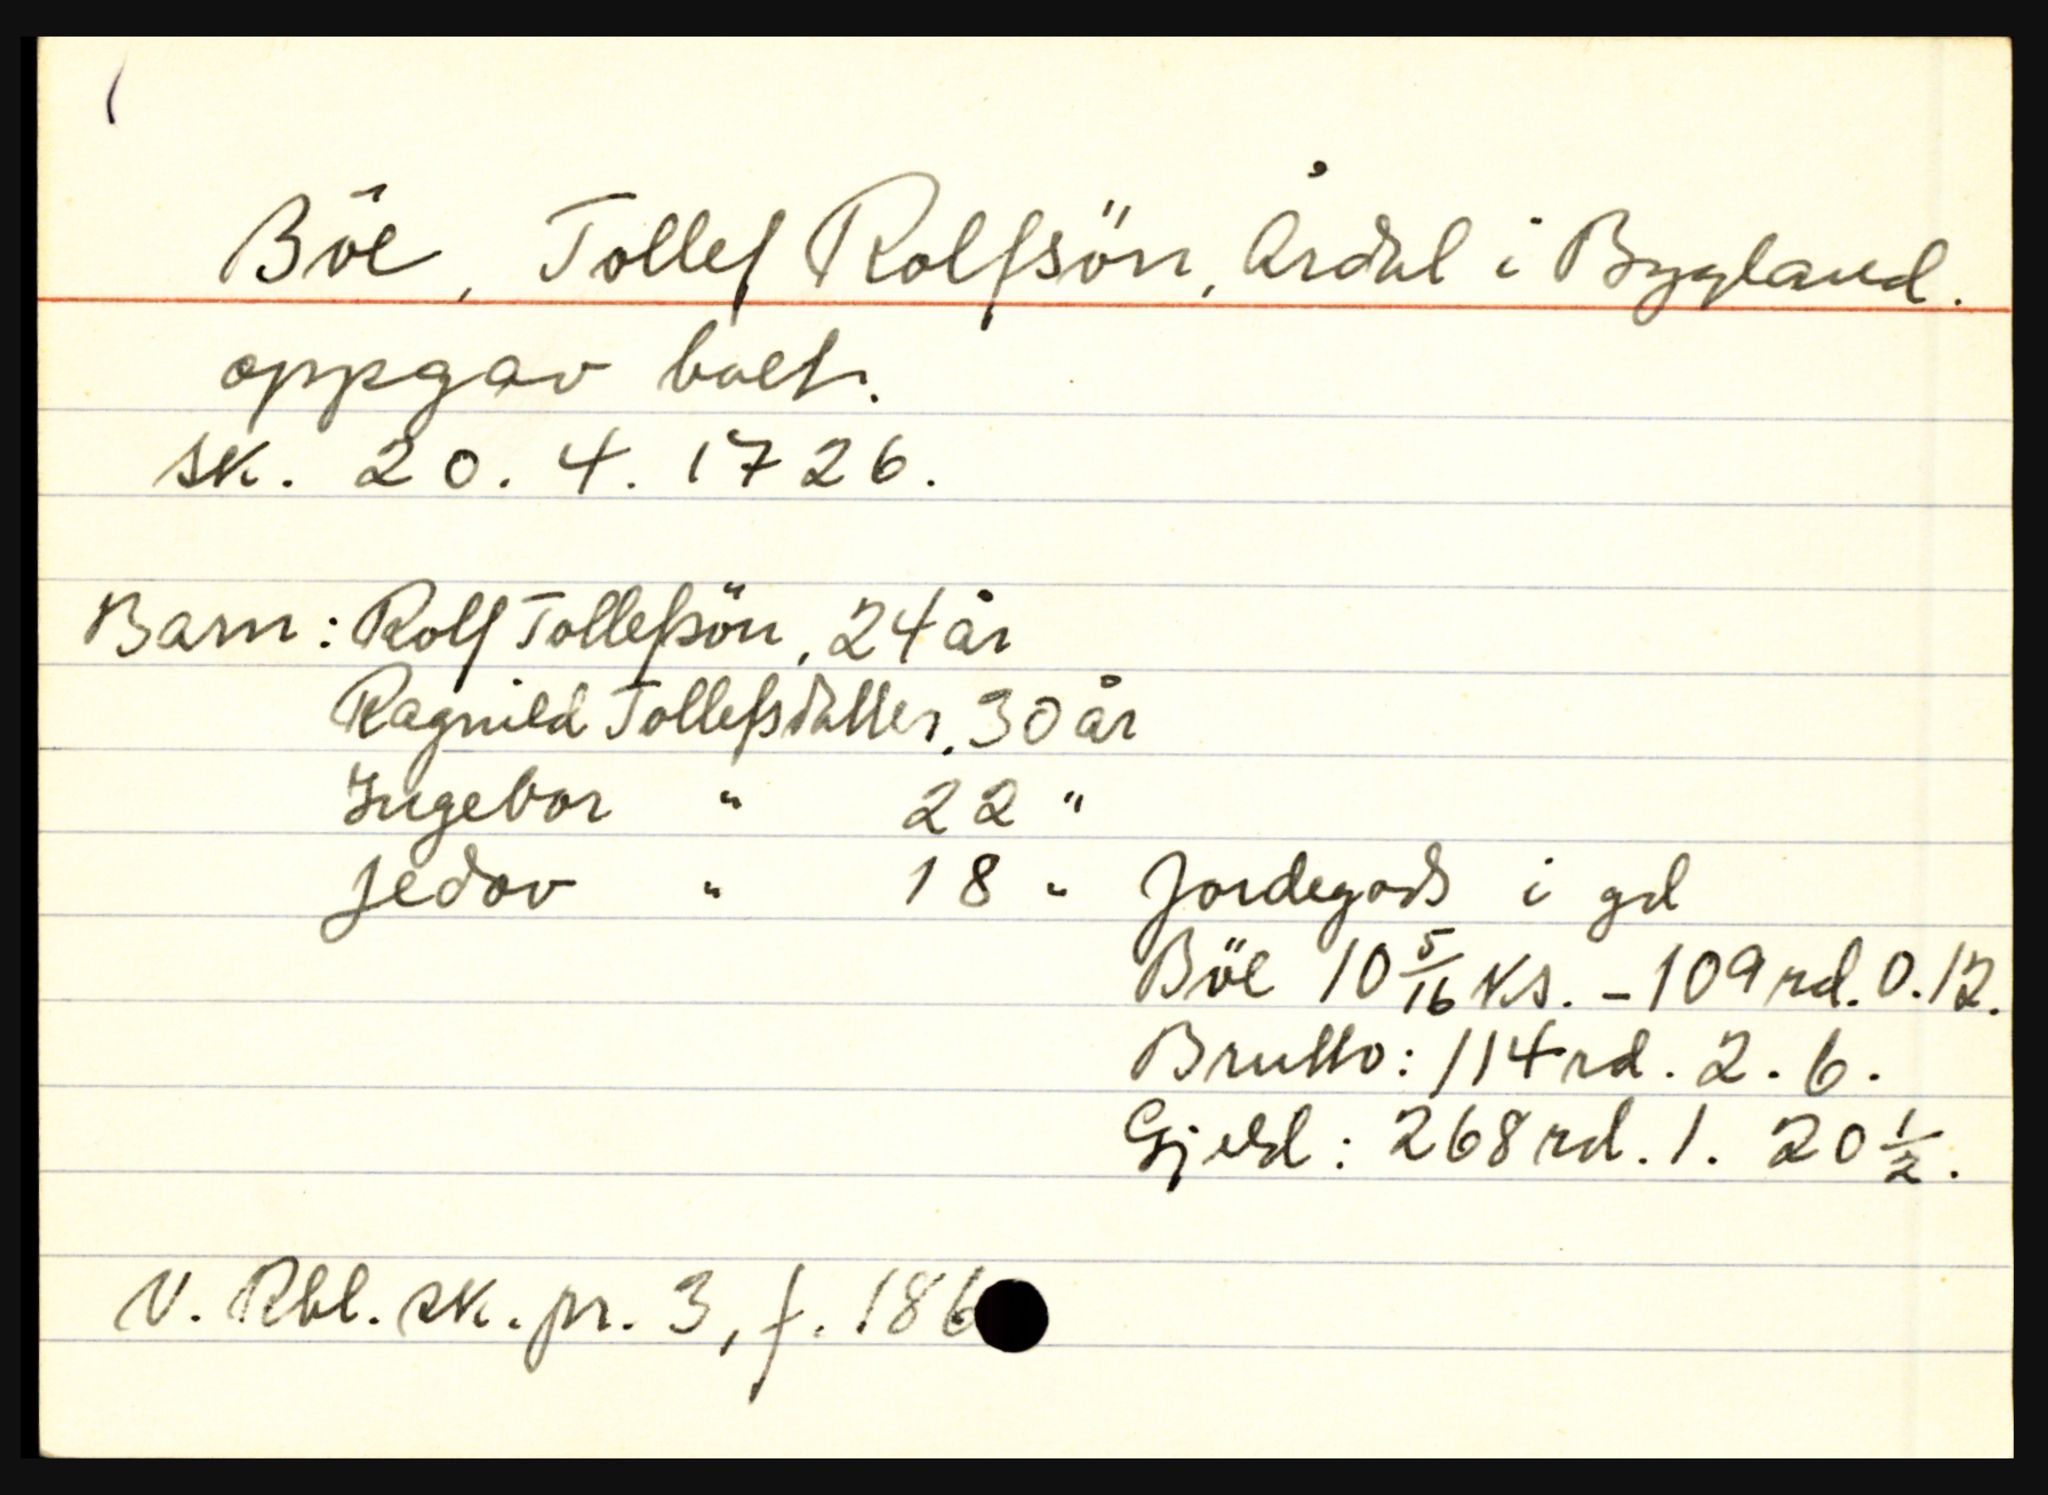 Böe, Tollef Rolfsön, Årdal i Bygland.
oppgav boet.
sk. 20. 4. 1726.
Barn: Rolf Tollefsön, 24 år
Ragnild Tollefsdatter, 30 år
Ingebor " 22 "
Jedov " 18 " Jordegods i gd
Böe 10 5/16 ks. - 109 rd. 0. 12.
Brutto: 114 rd. 2. 6.
Gjeld: 268 rd. 1. 20 1/2.
V. Rbl. sk. pr. 3, f. 186